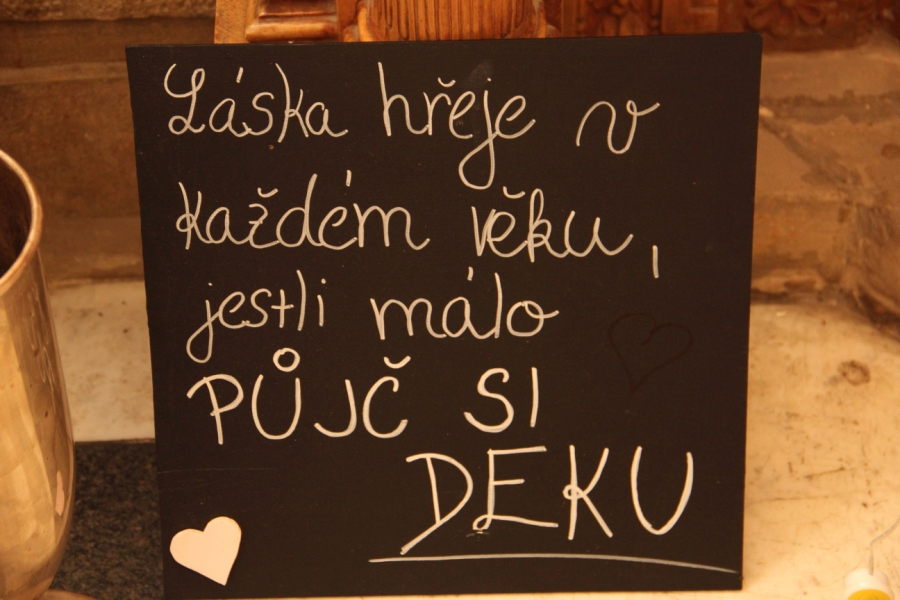 Láska hřeje v
každém věku,
jestli málo
PŮJČ SI
DEKU